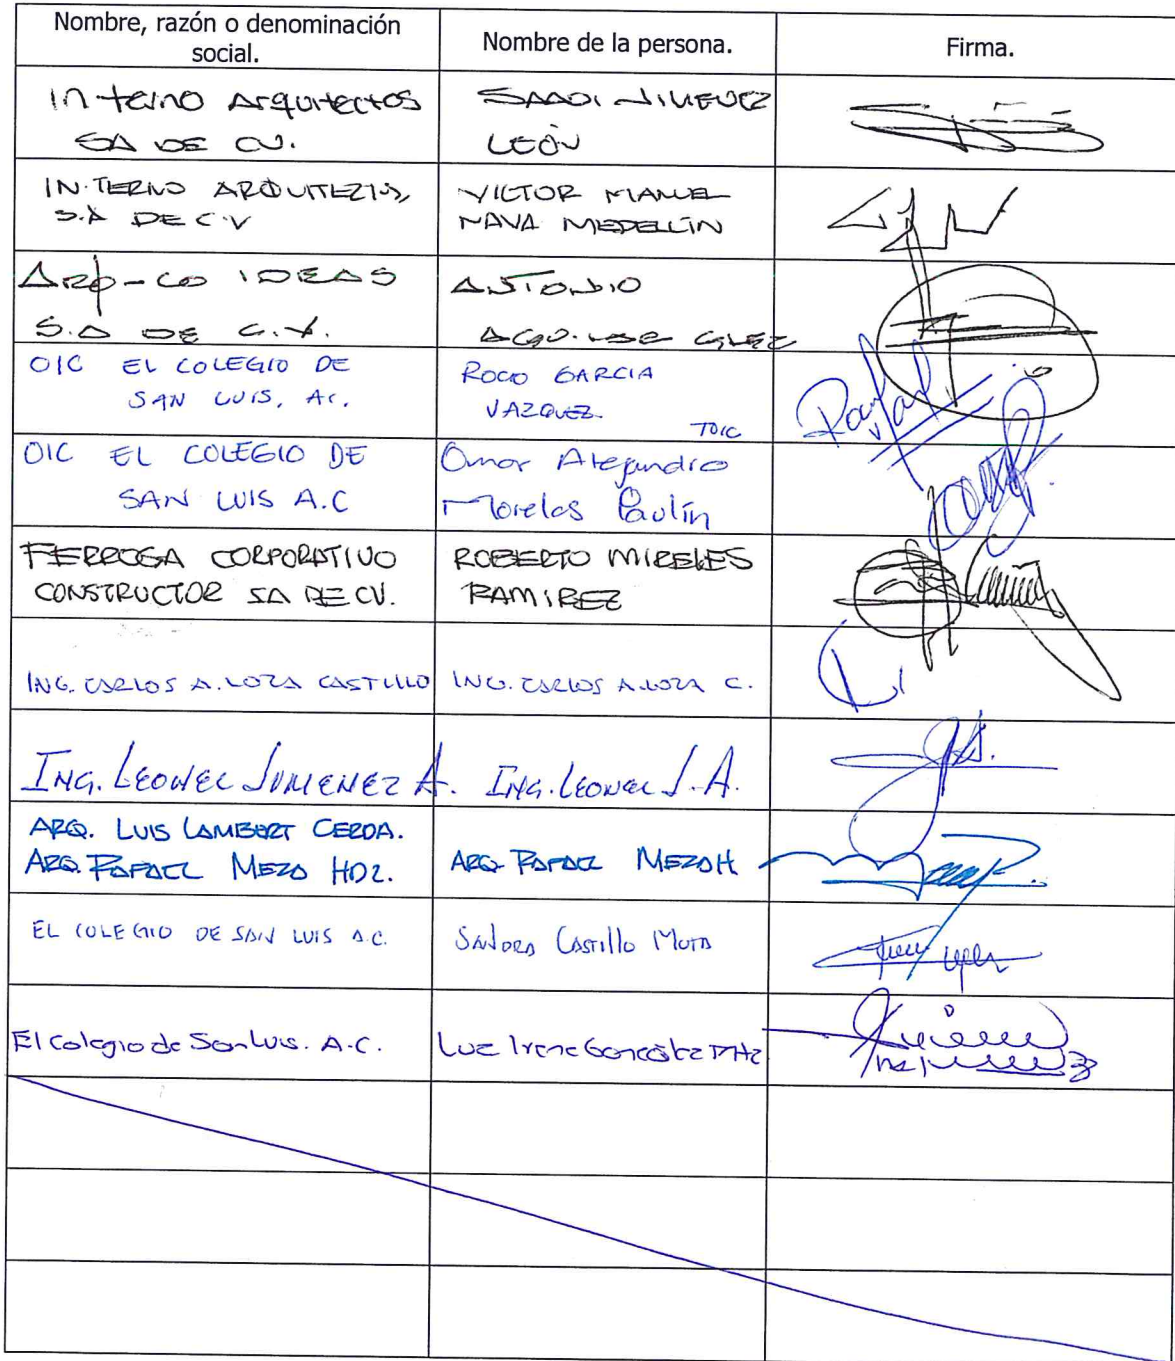 Nombre, razón o denominación
social.
Nombre de la persona.
Firma.
In-terno Arquitectos
SA DE CV.
SAADI JIMENEZ
LEÓN
IN·TERNO ARQUITECTOS,
S.A DE C.V
VICTOR MANUEL
NAVA MEDELLÍN
ARQ-CO IDEAS
S.A DE C.V.
ANTONIO
AGUILAR GLEZ
OIC EL COLEGIO DE
SAN LUIS, AC.
ROCIO GARCIA
VAZQUEZ.
TOIC
OIC EL COLEGIO DE
SAN LUIS A.C
Omar Alejandro
Morelos Paulín
FERROGA CORPORATIVO
CONSTRUCTOR SA DE CV.
ROBERTO MIRELES
RAMIREZ
ING. CARLOS A. LOZA CASTILLO
ING. CARLOS A. LOZA C.
ING. LEONEL JIMENEZ A.
ING. LEONEL J.A.
ARQ. LUIS LAMBERT CERDA.
ARQ. RAFAEL MEZA HDZ.
ARQ RAFAEL MEZA H
EL COLEGIO DE SAN LUIS A.C.
SANDRA CASTILLO MOTA
El Colegio de San Luis. A.C.
Luz Irene González Mtz